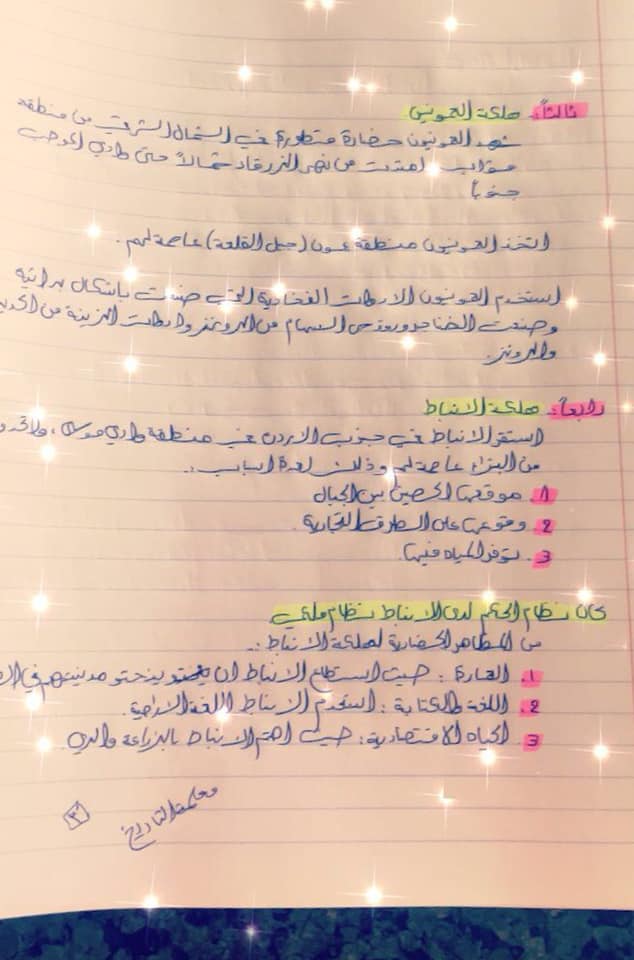 ثالثاً: مملكة العمونيين
شهد العمونيون حضارة متطورة في الشمال الشرقي من منطقة
مؤاب، امتدت من نهر الزرقاء شمالاً حتى وادي الموجب
جنوباً
اتخذ العمونيون منطقة عمون (جبل القلعة) عاصمة لهم.
استخدم العمونيون الادوات الفخارية التي صنعت باشكال بدائية
وصنعت الخناجر ورؤوس السهام من البرونز وادوات الزينة من الحديد
والبرونز.
رابعاً: مملكة الانباط
استقر الانباط في جنوب الاردن في منطقة وادي موسى،
من البتراء عاصمة لهم وذلك لعدة اسباب:.
1. موقعها الحصين بين الجبال
2. وقوعها على الطرق التجارية.
3. توفر المياه فيها.
كان نظام الحكم لدى الانباط نظام ملكي
من المظاهر الحضارية لمملكة الانباط :.
1. العمارة: حيث استطاع الانباط ان ينحتو مدينتهم في
2. اللغة والكتابة: استخدم الانباط اللغة الارامية.
3. الحياة الاقتصادية: حيث اهتم الانباط بالزراعة والري.
معلمة التاريخ
٣